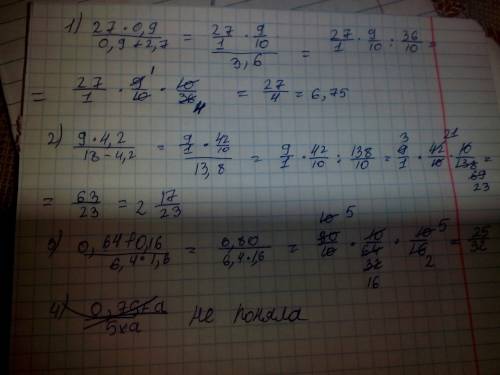 1) 27·0,9 / 0,9+2,7 = 27/1 · 9/10 / 3,6 = 27/1 · 9/10 : 36/10 =
= 27/1 · 9/10 · 10/36 1 4 = 27/4 = 6,75
2) 9·4,2 / 18-4,2 = 9/1 · 42/10 / 13,8 = 9/1 · 42/10 : 138/10 = 9/1 · 42/10 · 10/138 3 21 69 23 =
= 63/23 = 2 17/23
3) 0,64+0,16 / 6,4·1,6 = 0,80 / 6,4·1,6 = · 10/64 · 10/16 10 5 32 16 5 2 = 25/32
4) 5xa не поняла